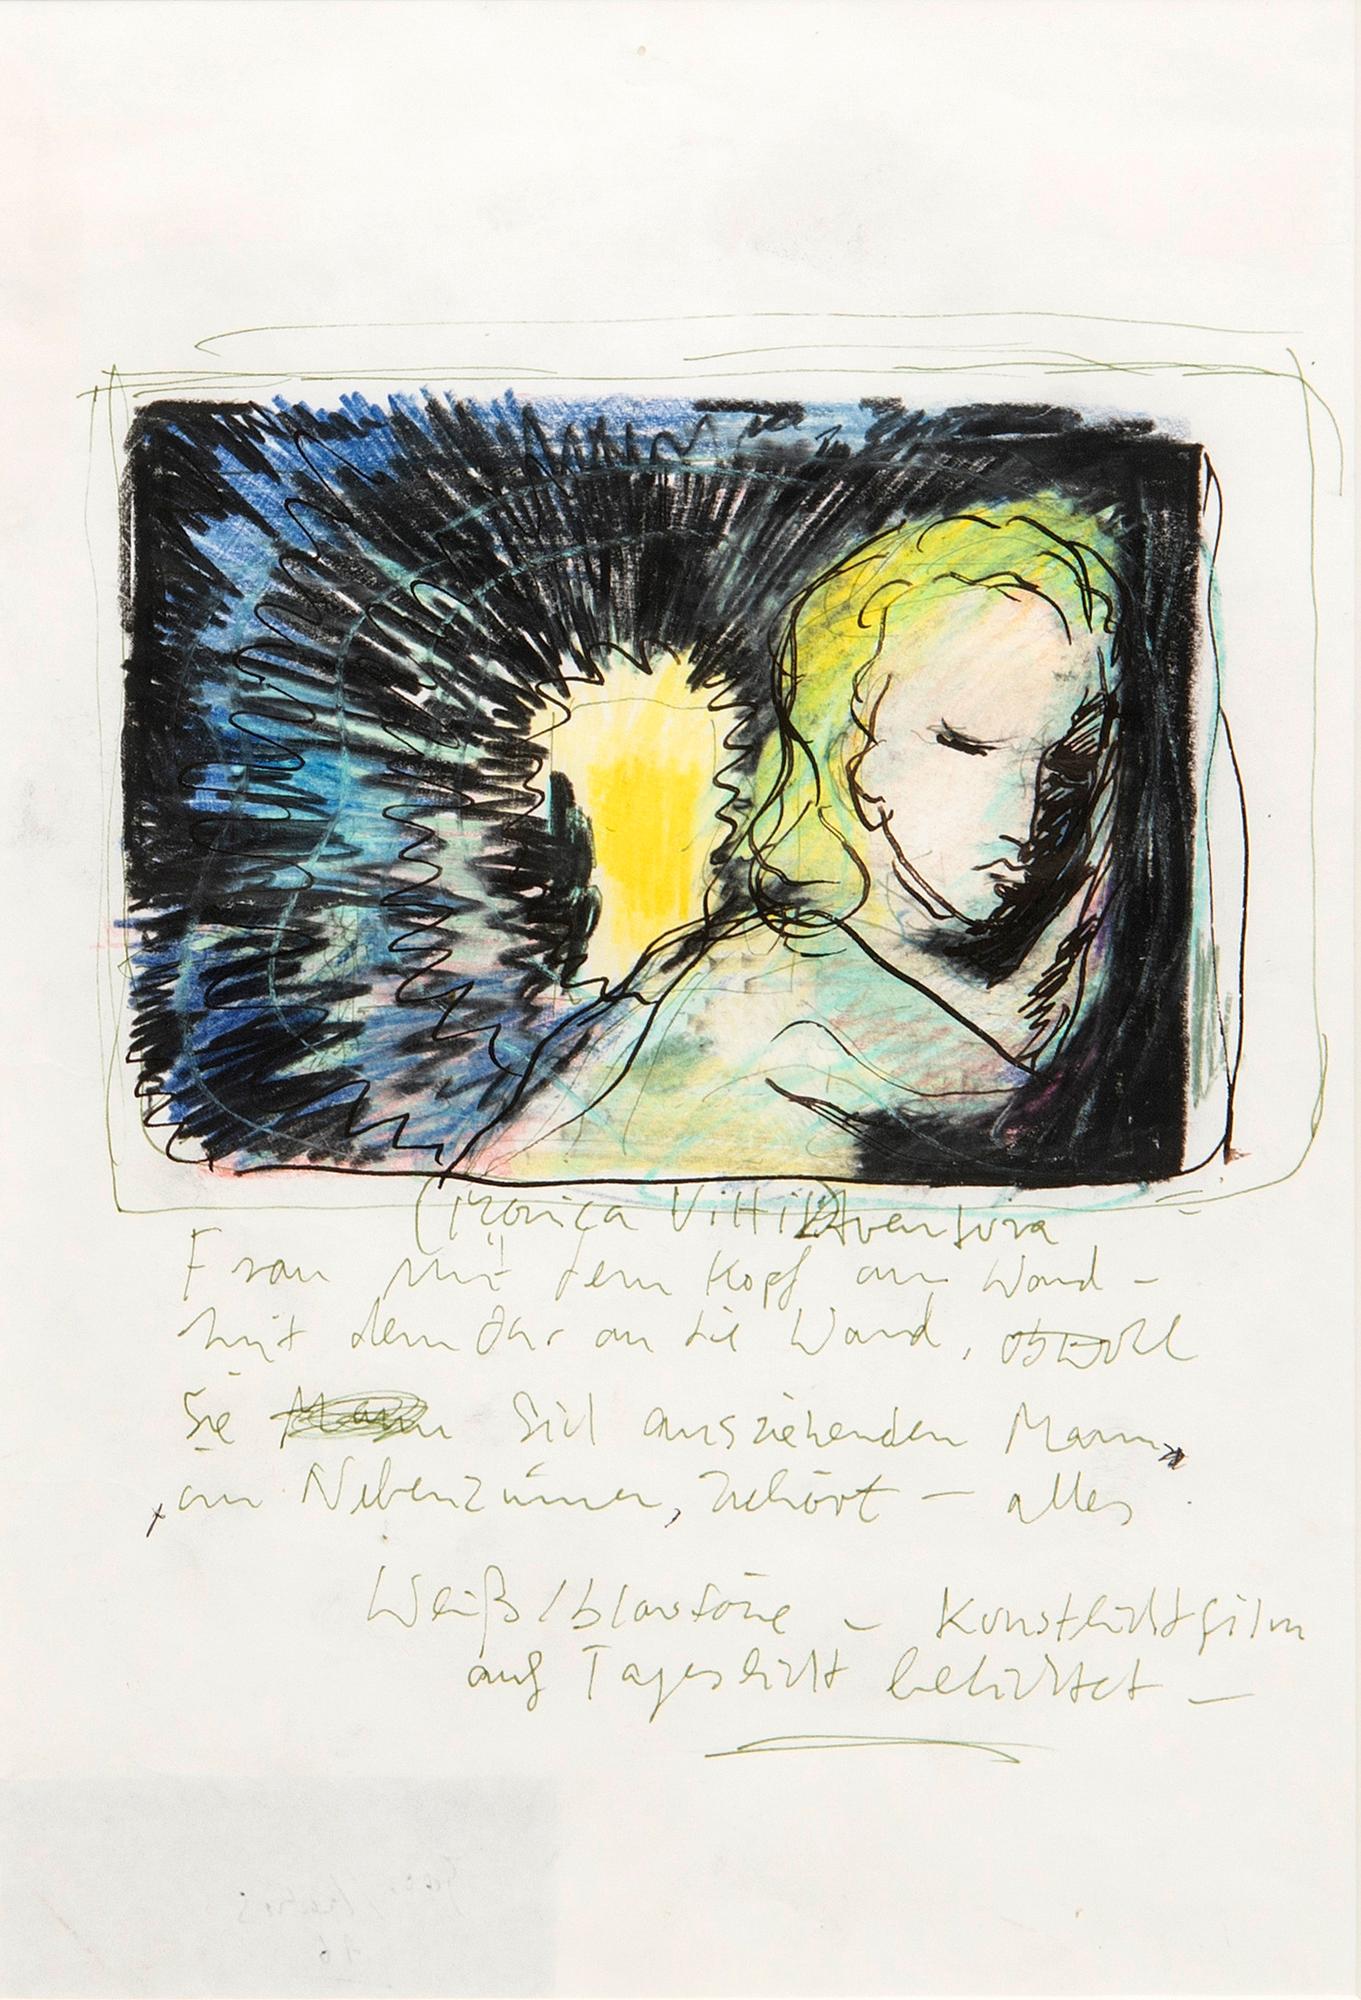 (Monica Vitti) Aventura
Frau mit dem Kopf an Wand –
mit dem Ohr an die Wand, obwohl
sie sich ausziehenden Mann
im Nebenzimmer, zuhört – alles
Weiß/blautöne – Kunstlichtfilm
auf Tageslicht belichtet –